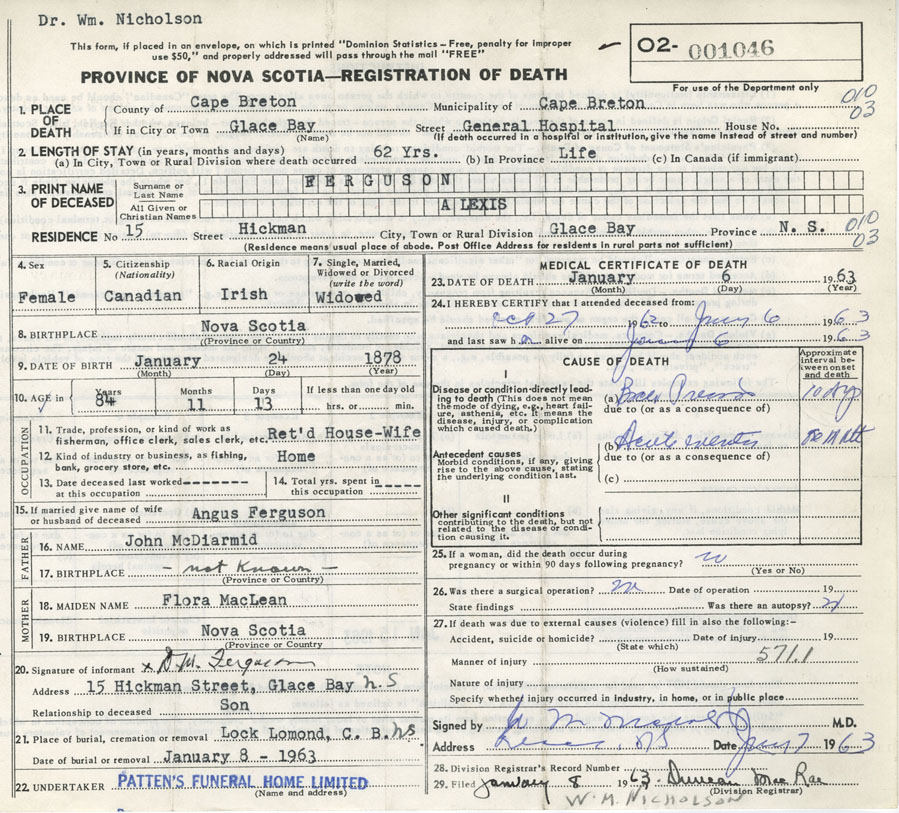 Dr. Wm. Nicholson
This form, if placed in an envelope, on which is printed "Dominion Statistics – Free, penalty for improper
use $50," and properly addressed will pass through the mail "FREE"
02- 001046
For use of the Department only
PROVINCE OF NOVA SCOTIA—REGISTRATION OF DEATH
1. PLACE OF DEATH
County of Cape Breton Municipality of Cape Breton 010
If in City or Town Glace Bay Street General Hospital House No. 03
(Name) (If death occurred in a hospital or institution, give the name instead of street and number)
2. LENGTH OF STAY (in years, months and days)
(a) In City, Town or Rural Division where death occurred 62 Yrs. (b) In Province Life (c) In Canada (if immigrant)
3. PRINT NAME OF DECEASED
Surname or Last Name FERGUSON
All Given or Christian Names ALEXIS
RESIDENCE No 15 Street Hickman City, Town or Rural Division Glace Bay Province N. S. 010
(Residence means usual place of abode. Post Office Address for residents in rural parts not sufficient) 03
4. Sex
Female
5. Citizenship
(Nationality)
Canadian
6. Racial Origin
Irish
7. Single, Married,
Widowed or Divorced
(write the word)
Widowed
8. BIRTHPLACE Nova Scotia
(Province or Country)
9. DATE OF BIRTH January 24 1878
(Month) (Day) (Year)
10. AGE in
Years Months Days If less than one day old
84 11 13 hrs. or min.
OCCUPATION
11. Trade, profession, or kind of work as
fisherman, office clerk, sales clerk, etc. Ret'd House-Wife
12. Kind of industry or business, as fishing,
bank, grocery store, etc. Home
13. Date deceased last worked
at this occupation
14. Total yrs. spent in
this occupation
15. If married give name of wife
or husband of deceased Angus Ferguson
FATHER
16. NAME John McDiarmid
17. BIRTHPLACE – not Known –
(Province or Country)
MOTHER
18. MAIDEN NAME Flora MacLean
19. BIRTHPLACE Nova Scotia
(Province or Country)
20. Signature of informant x D.M. Ferguson
Address 15 Hickman Street, Glace Bay N.S
Relationship to deceased Son
21. Place of burial, cremation or removal Lock Lomond, C. B. NS.
Date of burial or removal January 8 - 1963
22. UNDERTAKER PATTEN'S FUNERAL HOME LIMITED
(Name and address)
MEDICAL CERTIFICATE OF DEATH
23. DATE OF DEATH January 6 1963
(Month) (Day) (Year)
24. I HEREBY CERTIFY that I attended deceased from:
Oct 27 1962 to Jany 6 1963
and last saw h alive on Jany 6 1963
CAUSE OF DEATH
Approximate
interval be-
tween onset
and death
I
Disease or condition directly lead-
ing to death (This does not mean
the mode of dying, e.g., heart fail-
ure, asthenia, etc. It means the
disease, injury, or complication
which caused death.)
(a)
due to (or as a consequence of)
(b) Acute
due to (or as a consequence of)
Antecedent causes
Morbid conditions, if any, giving
rise to the above cause, stating
the underlying condition last.
(c)
II
Other significant conditions
contributing to the death, but not
related to the disease or condi-
tion causing it.
25. If a woman, did the death occur during
pregnancy or within 90 days following pregnancy? no
(Yes or No)
26. Was there a surgical operation? no Date of operation 19
State findings Was there an autopsy? no
27. If death was due to external causes (violence) fill in also the following:–
Accident, suicide or homicide? Date of injury 19
(State which)
571.1
Manner of injury
(How sustained)
Nature of injury
Specify whether injury occurred in industry, in home, or in public place
Signed by M.D.
Address Date Jany 7 1963
28. Division Registrar's Record Number
29. Filed January 8 1963. Duncan MacRae
(Division Registrar)
W. M. NICHOLSON